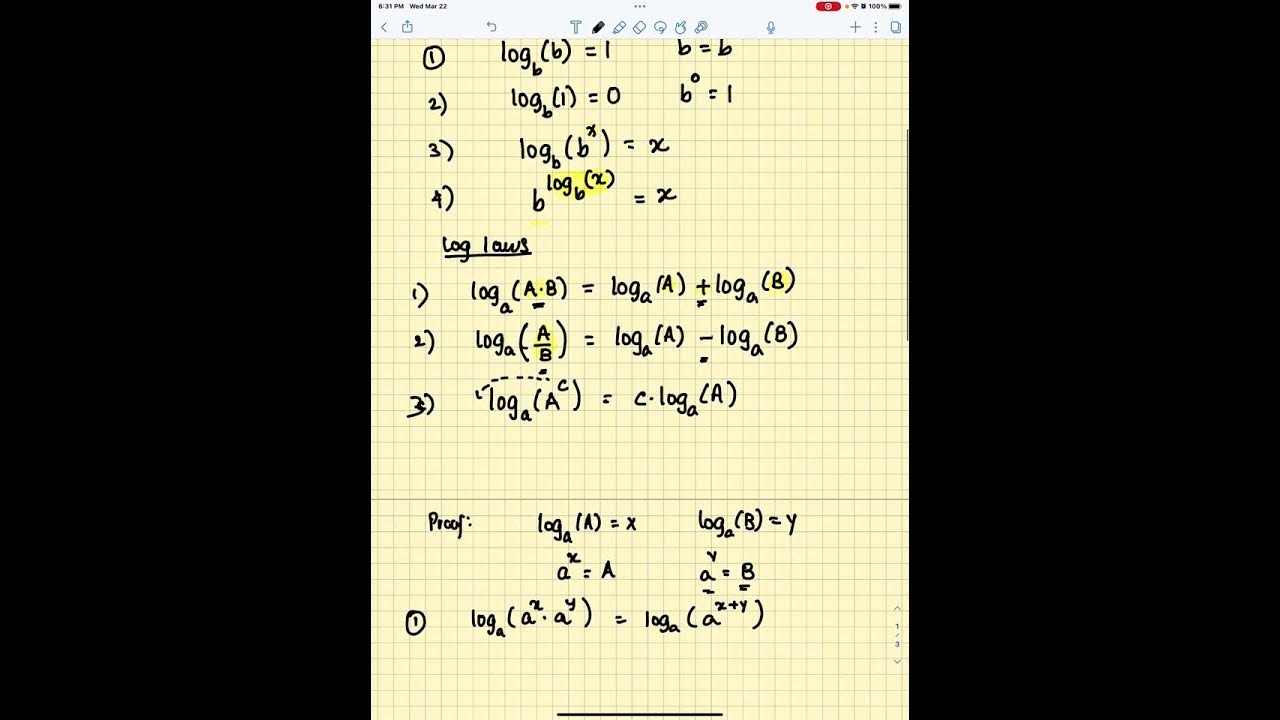 6:31 PM Wed Mar 22 100%
① log_b(b) = 1 b = b
2) log_b(1) = 0 b^0 = 1
3) log_b(b^x) = x
4) b^{log_b(x)} = x
log laws
1) log_a(A·B) = log_a(A) + log_a(B)
2) log_a(A/B) = log_a(A) - log_a(B)
3) log_a(A^c) = c·log_a(A)
Proof: log_a(A) = x log_a(B) = y
a^x = A a^y = B
① log_a(a^x · a^y) = log_a(a^{x+y})
1
/
3